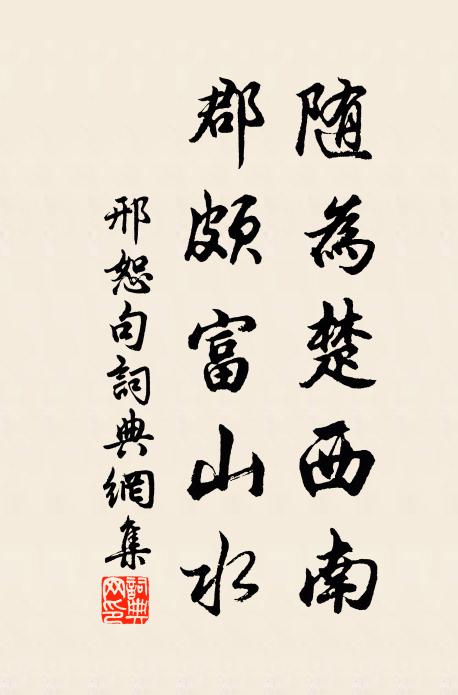 随為楚西南
郡頗富山水
邢恕句詞典網集
詞典網印